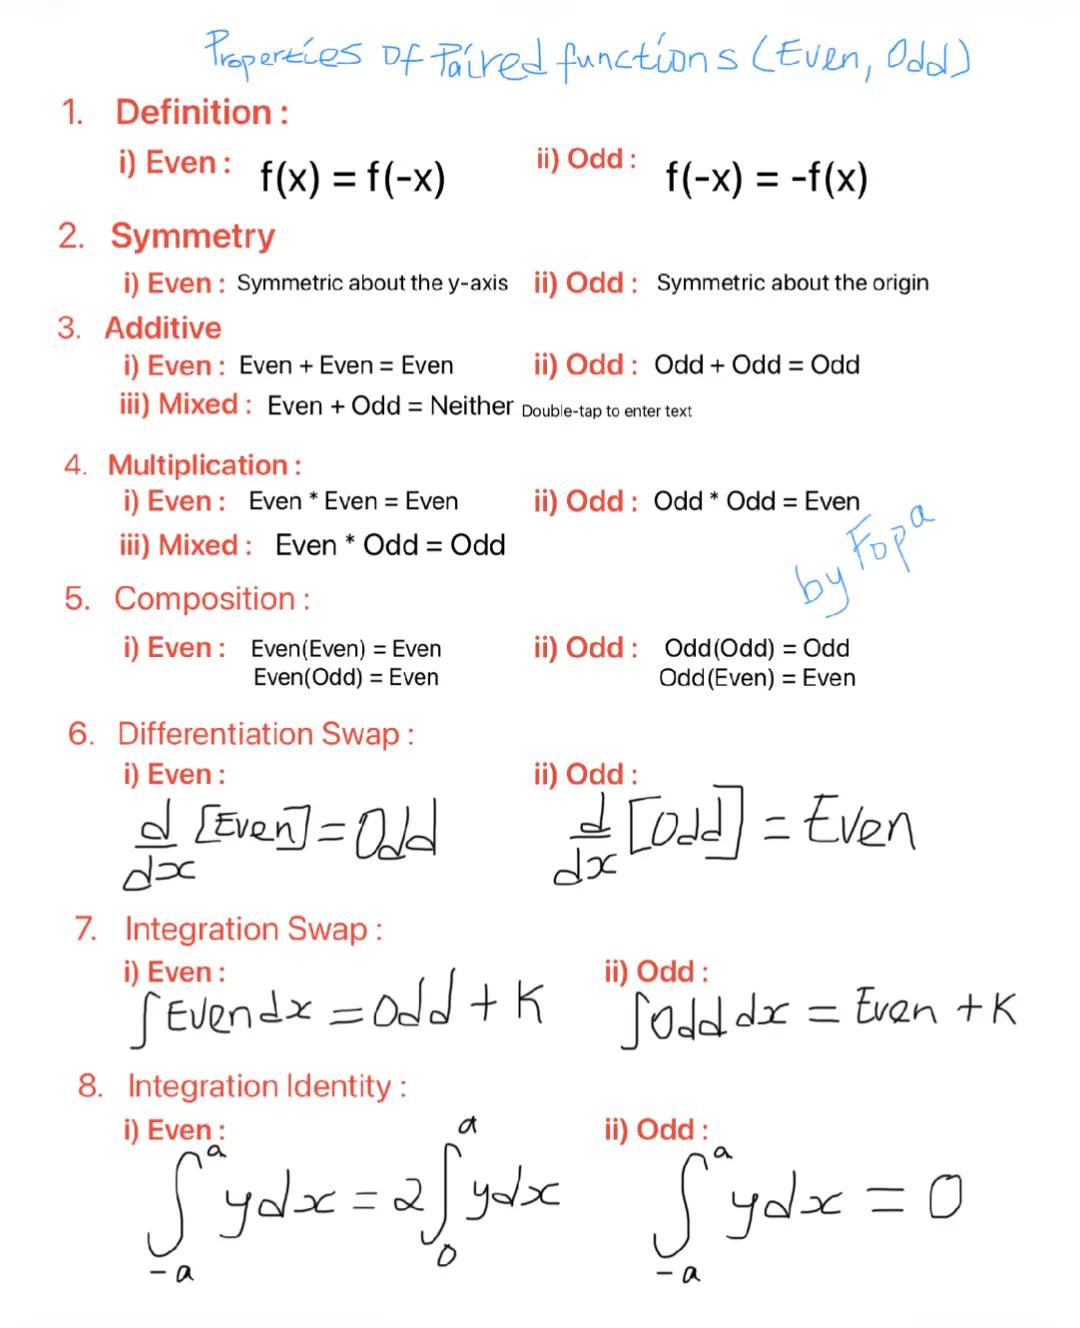 Properties Of Paired functions (Even, Odd)
1. Definition :
i) Even : f(x) = f(-x) ii) Odd : f(-x) = -f(x)
2. Symmetry
i) Even : Symmetric about the y-axis ii) Odd : Symmetric about the origin
3. Additive
i) Even : Even + Even = Even ii) Odd : Odd + Odd = Odd
iii) Mixed : Even + Odd = Neither Double-tap to enter text
4. Multiplication :
i) Even : Even * Even = Even ii) Odd : Odd * Odd = Even
iii) Mixed : Even * Odd = Odd
by Fopa
5. Composition :
i) Even : Even(Even) = Even ii) Odd : Odd(Odd) = Odd
Even(Odd) = Even Odd(Even) = Even
6. Differentiation Swap :
i) Even : ii) Odd :
d/dx [Even] = Odd d/dx [Odd] = Even
7. Integration Swap :
i) Even : ii) Odd :
∫Even dx = Odd + K ∫Odd dx = Even + K
8. Integration Identity :
i) Even : ii) Odd :
∫_{-a}^{a} y dx = 2∫_{0}^{a} y dx ∫_{-a}^{a} y dx = 0